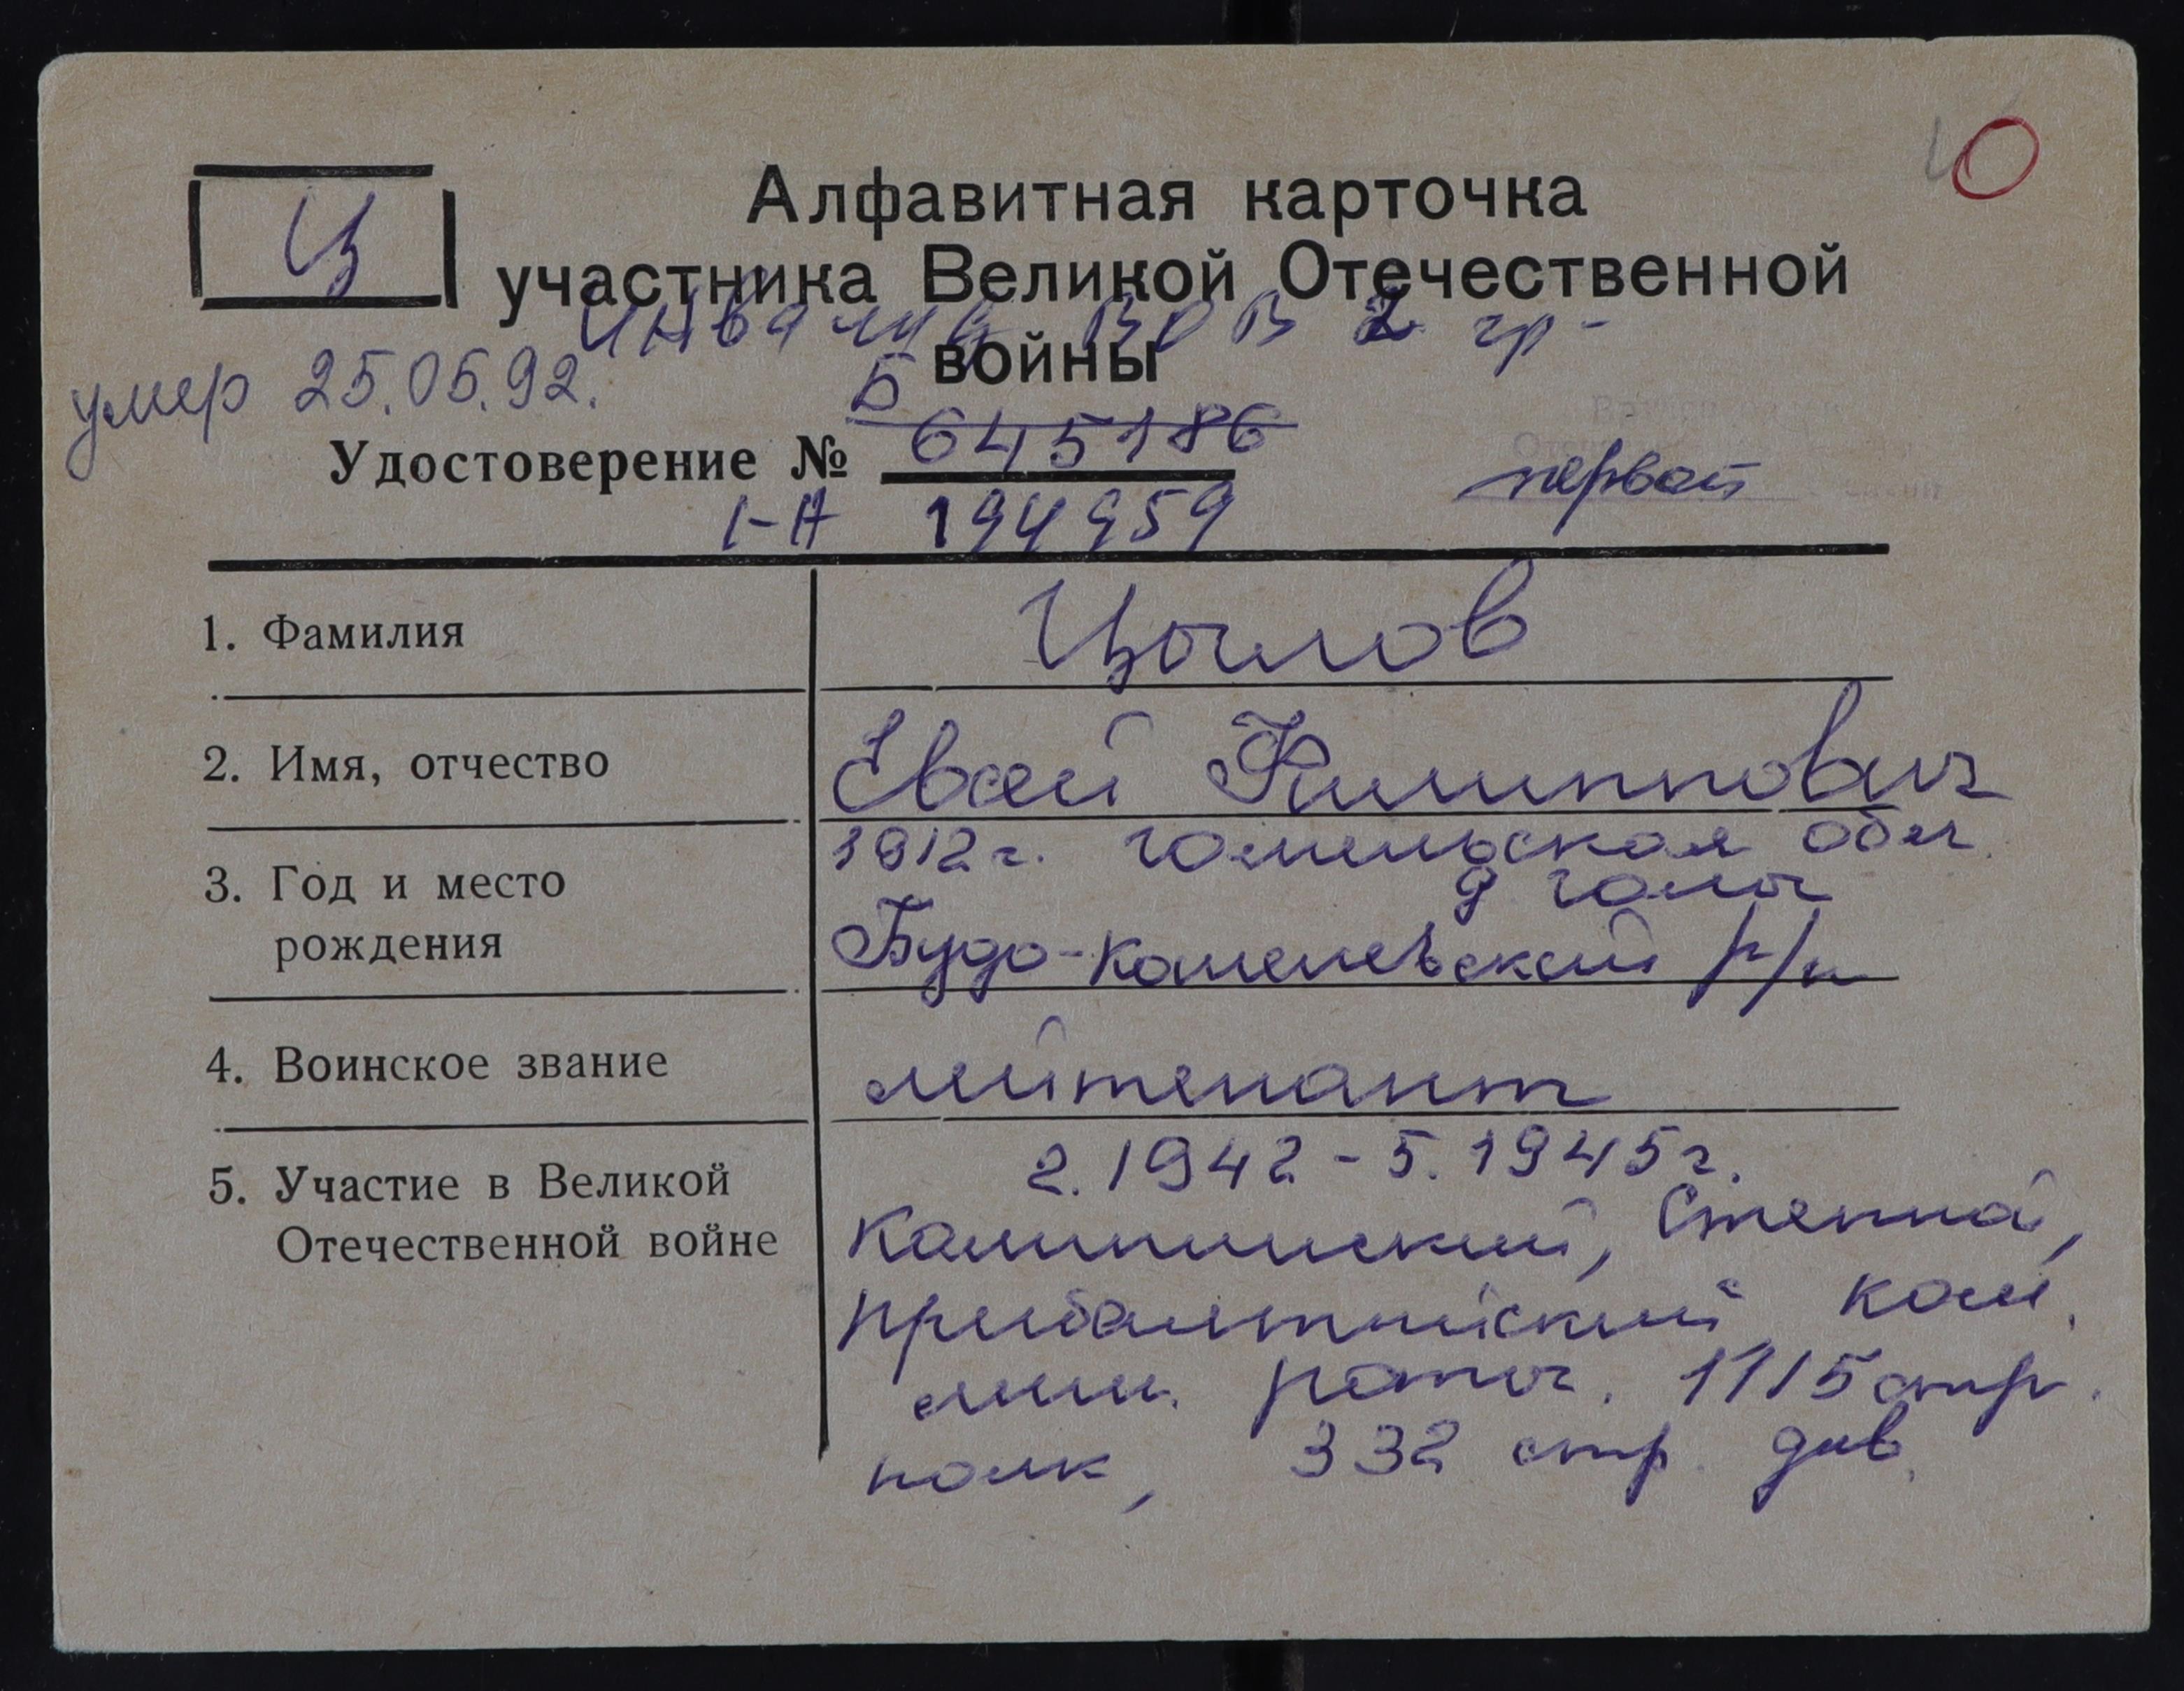 О
Ц
Алфавитная карточка
участника Великой Отечественной
войны
инвалид ВОВ 2 гр-
умер 25.05.92.
Б
Удостоверение № 645186
I-А 194959
первой
1. Фамилия
Цылов
2. Имя, отчество
Евсей Филиппович
3. Год и место
рождения
1912 г. Гомельская обл.
д Голы
Будо-Кошелевский р/н
4. Воинское звание
лейтенант
5. Участие в Великой
Отечественной войне
2.1942-5.1945г.
Калининский, Степной,
прибалтийский ком.
мин. роты. 1115 стр.
полк, 332 стр. див.